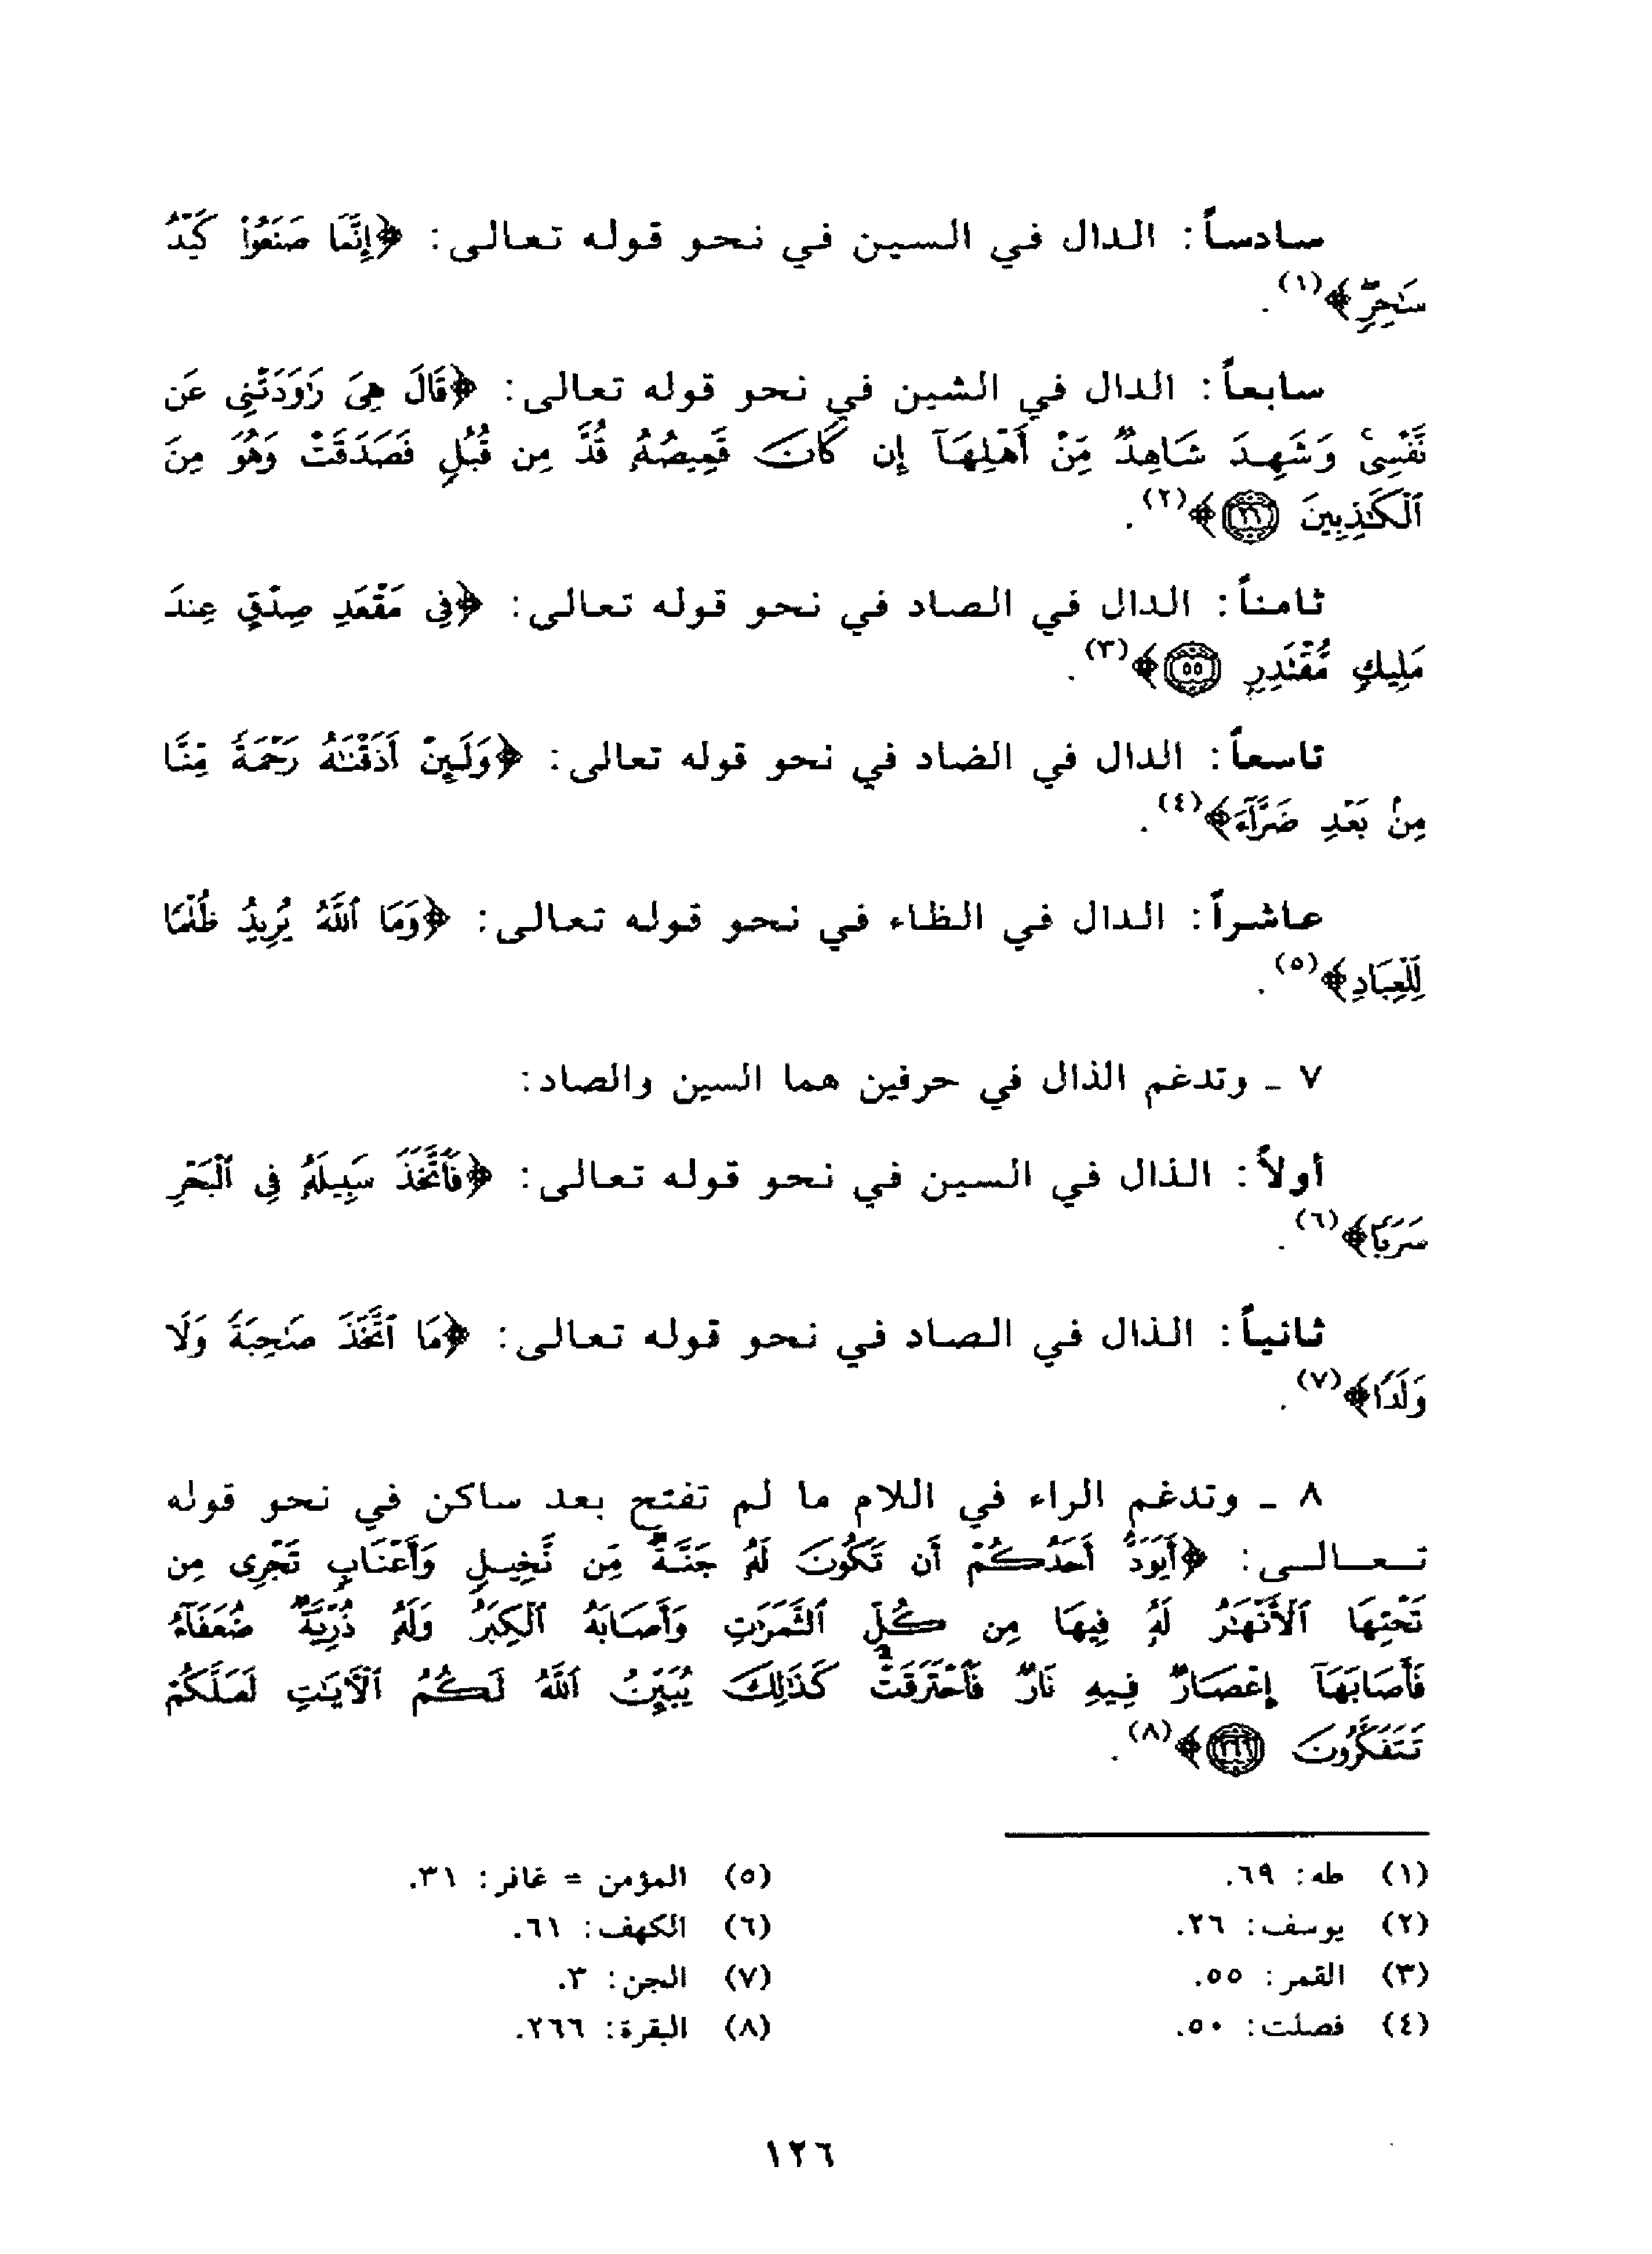 سادساً: الدال في السين في نحو قوله تعالى: ﴿إِنَّمَا صَنَعُوا۟ كَيْدُ
سَٰحِرٍۖ﴾(١).
سابعاً: الدال في الشين في نحو قوله تعالى: ﴿قَالَ هِىَ رَٰوَدَتْنِى عَن
نَّفْسِىۚ وَشَهِدَ شَاهِدٌ مِّنْ أَهْلِهَآ إِن كَانَ قَمِيصُهُۥ قُدَّ مِن قُبُلٍ فَصَدَقَتْ وَهُوَ مِنَ
ٱلْكَٰذِبِينَ ٢٦﴾(٢).
ثامناً: الدال في الصاد في نحو قوله تعالى: ﴿فِى مَقْعَدِ صِدْقٍ عِندَ
مَلِيكٍ مُّقْتَدِرٍۭ ٥٥﴾(٣).
تاسعاً: الدال في الضاد في نحو قوله تعالى: ﴿وَلَئِنْ أَذَقْنَٰهُ رَحْمَةً مِّنَّا
مِنۢ بَعْدِ ضَرَّآءَ﴾(٤).
عاشراً: الدال في الظاء في نحو قوله تعالى: ﴿وَمَا ٱللَّهُ يُرِيدُ ظُلْمًا
لِّلْعِبَادِ﴾(٥).
٧ ـ وتدغم الذال في حرفين هما السين والصاد:
أولاً: الذال في السين في نحو قوله تعالى: ﴿فَٱتَّخَذَ سَبِيلَهُۥ فِى ٱلْبَحْرِ
سَرَبًا﴾(٦).
ثانياً: الذال في الصاد في نحو قوله تعالى: ﴿مَا ٱتَّخَذَ صَٰحِبَةً وَلَا
وَلَدًا﴾(٧).
٨ ـ وتدغم الراء في اللام ما لم تفتح بعد ساكن في نحو قوله
تعالى: ﴿أَيَوَدُّ أَحَدُكُمْ أَن تَكُونَ لَهُۥ جَنَّةٌ مِّن نَّخِيلٍ وَأَعْنَابٍ تَجْرِى مِن
تَحْتِهَا ٱلْأَنْهَٰرُ لَهُۥ فِيهَا مِن كُلِّ ٱلثَّمَرَٰتِ وَأَصَابَهُ ٱلْكِبَرُ وَلَهُۥ ذُرِّيَّةٌ ضُعَفَآءُ
فَأَصَابَهَآ إِعْصَارٌ فِيهِ نَارٌ فَٱحْتَرَقَتْۗ كَذَٰلِكَ يُبَيِّنُ ٱللَّهُ لَكُمُ ٱلْءَايَٰتِ لَعَلَّكُمْ
تَتَفَكَّرُونَ ٢٦٦﴾(٨).
(١) طه: ٦٩.
(٢) يوسف: ٢٦.
(٣) القمر: ٥٥.
(٤) فصلت: ٥٠.
(٥) المؤمن = غافر: ٣١.
(٦) الكهف: ٦١.
(٧) الجن: ٣.
(٨) البقرة: ٢٦٦.
١٢٦